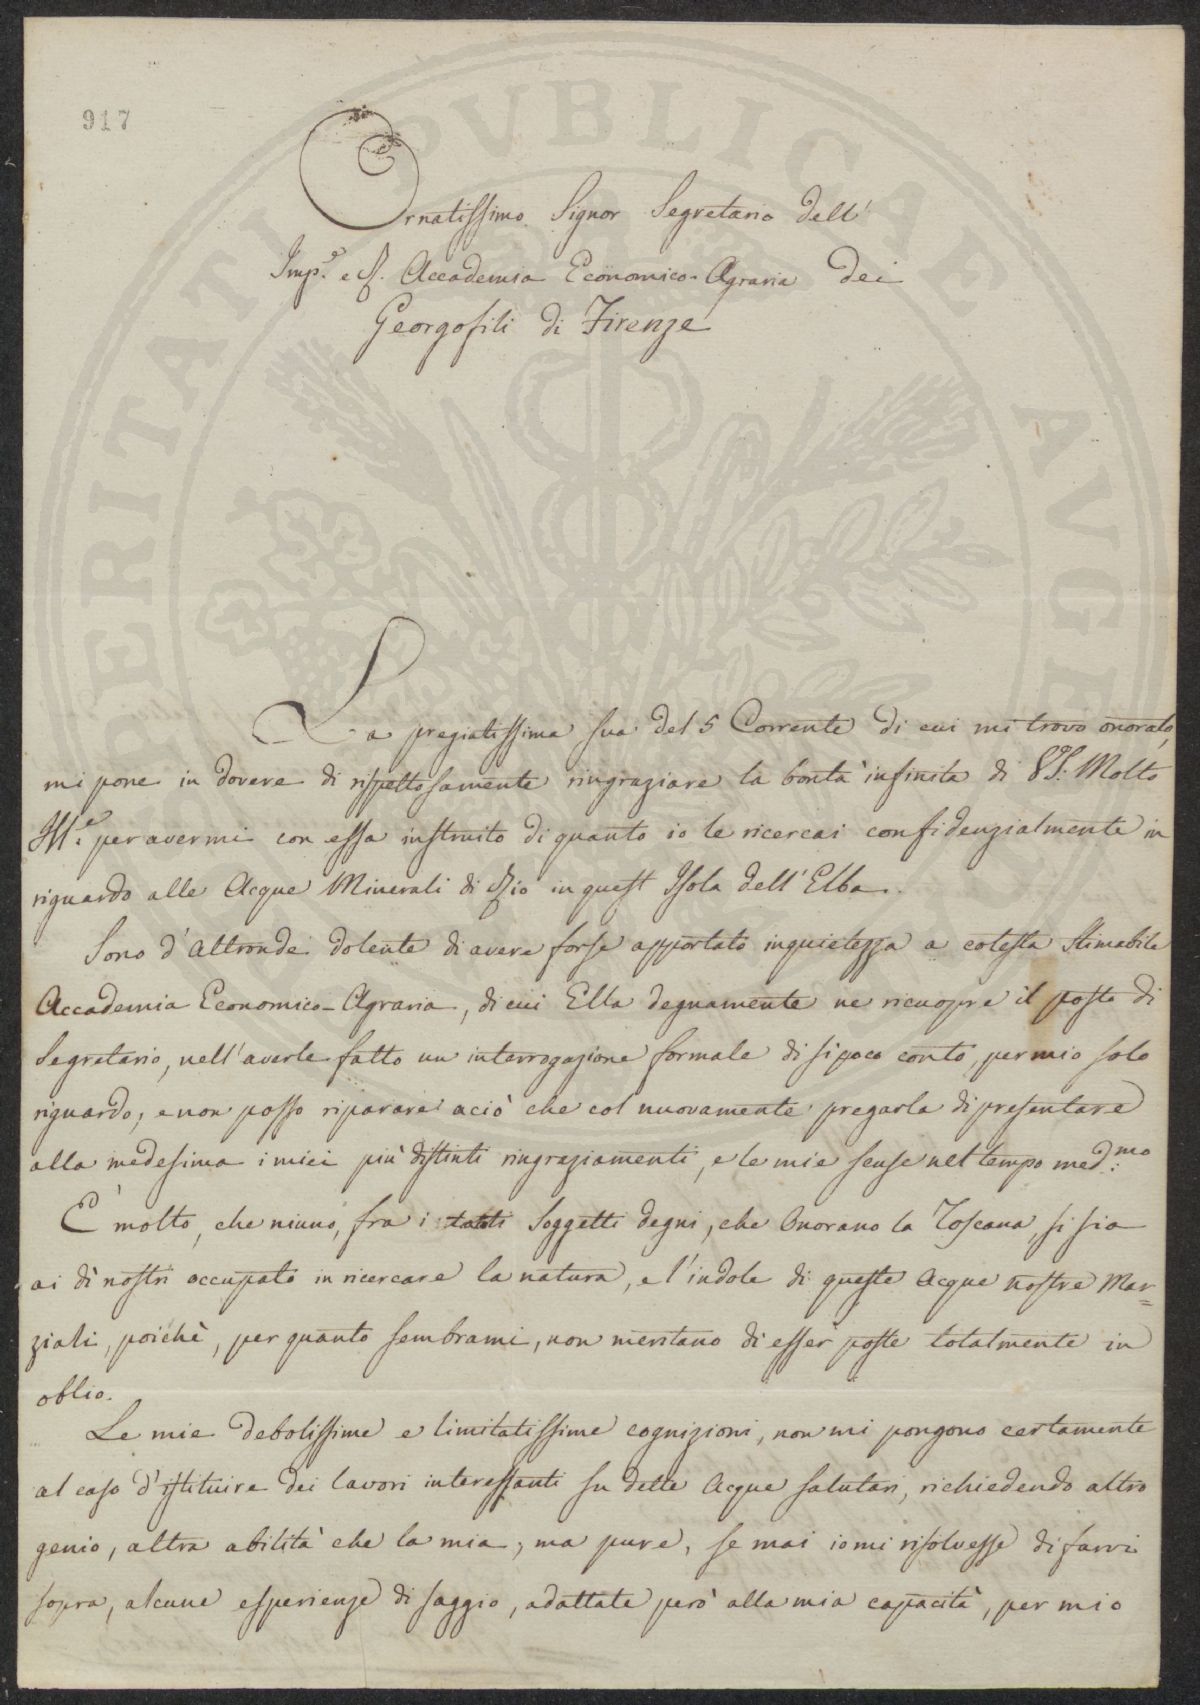 917
PROSPERITATI PVBLICAE AVGENDAE
Ornatissimo Signor Segretario dell'
Imp.e e R. Accademia Economico-Agraria dei
Georgofili di Firenze
La pregiatissima sua del 5 Corrente di cui mi trovo onorato,
mi pone in dovere di rispettosamente ringraziare la bontà infinita di VS: Molto
Ill.e per avermi con essa instruito di quanto io le ricercai confidenzialmente in
riguardo alle Acque Minerali di Rio in quest Isola dell'Elba.
Sono d'altronde dolente di avere forse apportato inquietezza a cotesta stimabile
Accademia Economico-Agraria, di cui Ella degnamente ne ricuopre il posto di
Segretario, nell'averle fatto un interrogazione formale di sì poco conto, per mio solo
riguardo, e non posso riparare a ciò che col nuovamente pregarla di presentare
alla medesima i miei più distinti ringraziamenti, e le mie scuse nel tempo med:mo
E' molto, che niuno, fra i tanti Soggetti degni, che Onorano la Toscana, si sia
ai dì nostri occupato in ricercare la natura, e l'indole di queste Acque nostre Mar=
ziali, poichè, per quanto sembrami, non meritano di esser poste totalmente in
oblio.
Le mie debolissime e limitatissime cognizioni, non mi pongono certamente
al caso d'istituire dei lavori interessanti su dette Acque salutari, richiedendo altro
genio, altra abilità che la mia; ma pure, se mai io mi risolvesse di farvi
sopra, alcune esperienze di saggio, adattate però alla mia capacità, per mio